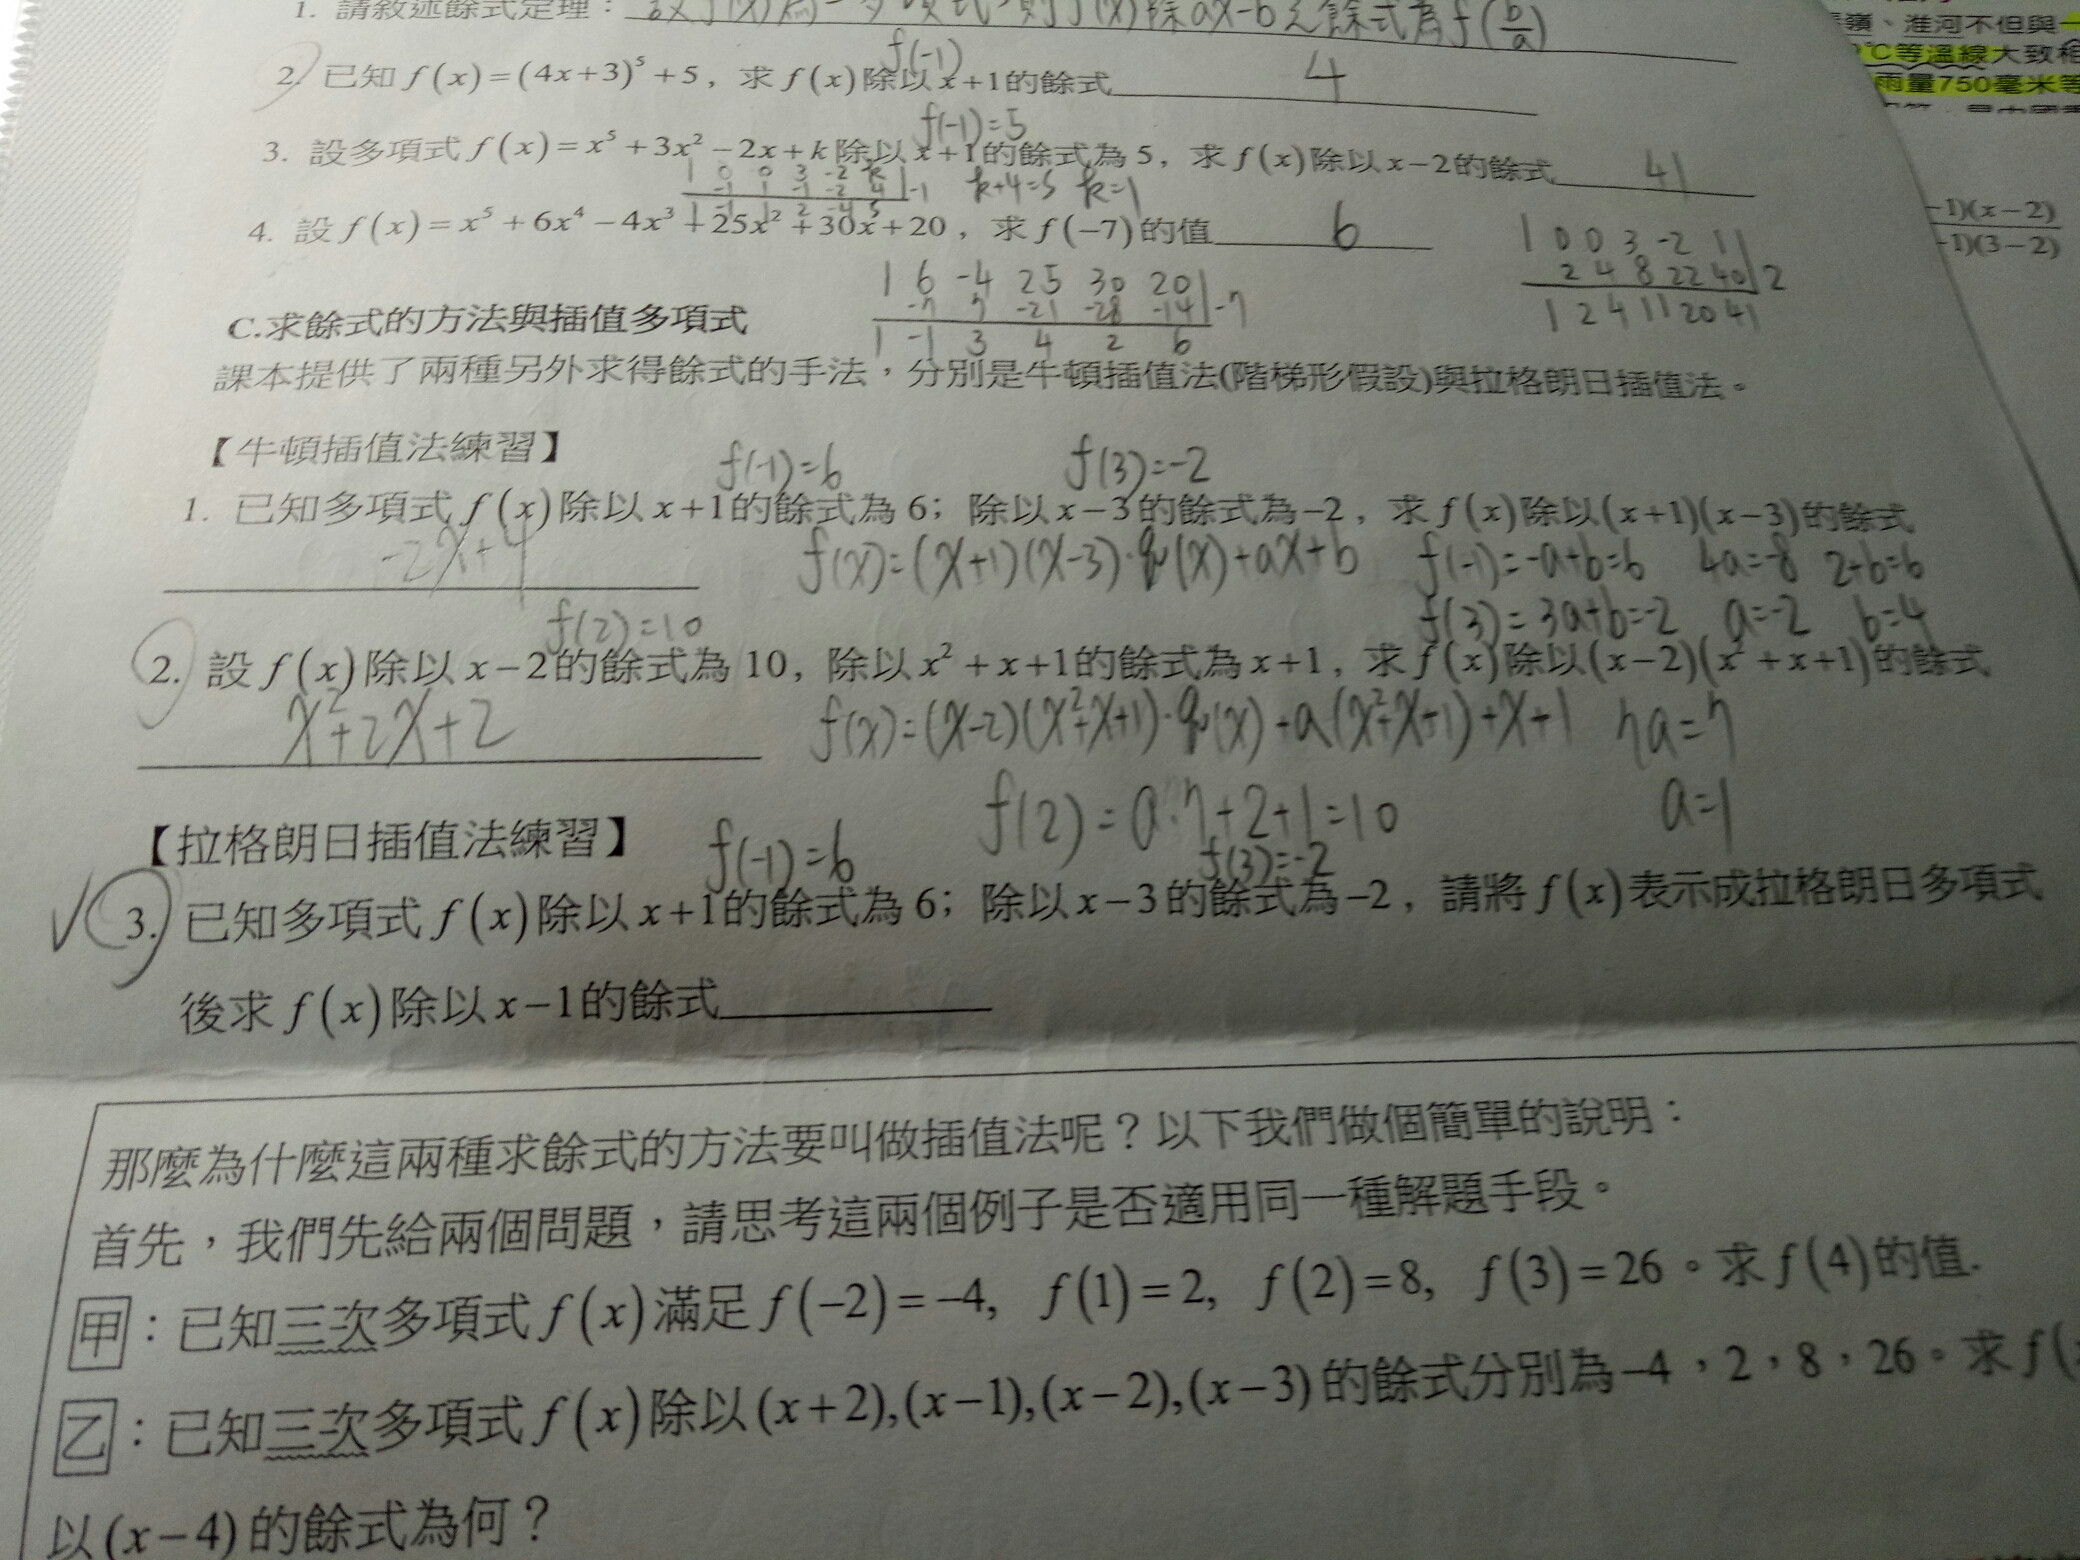 1. 請敘述餘式定理：設f(x)為一多項式，則f(x)除ax-b之餘式為f(b/a)
f(-1)
2. 已知 f(x)=(4x+3)⁵+5，求 f(x)除以x+1的餘式 4
f(-1)=5
3. 設多項式 f(x)=x⁵+3x²-2x+k除以x+1的餘式為5，求 f(x)除以x-2的餘式 41
1 0 0 3 -2 k
-1 1 -1 -2 4 |-1 k+4=5 k=1
1 -1 1 2 -4 5
4. 設 f(x)=x⁵+6x⁴-4x³+25x²+30x+20，求 f(-7)的值 6
1 0 0 3 -2 1
2 4 8 22 40 |2
1 2 4 11 20 41
1 6 -4 25 30 20
-7 7 -21 -28 -14 |-7
1 -1 3 4 2 6
C.求餘式的方法與插值多項式
課本提供了兩種另外求得餘式的手法，分別是牛頓插值法(階梯形假設)與拉格朗日插值法。
【牛頓插值法練習】
f(-1)=6 f(3)=-2
1. 已知多項式 f(x)除以x+1的餘式為6；除以x-3的餘式為-2，求 f(x)除以(x+1)(x-3)的餘式
-2x+4 f(x)=(x+1)(x-3)·q(x)+ax+b f(-1)=-a+b=6 4a=-8 2+b=6
f(3)=3a+b=-2 a=-2 b=4
f(2)=10
2. 設 f(x)除以x-2的餘式為10，除以x²+x+1的餘式為x+1，求 f(x)除以(x-2)(x²+x+1)的餘式
x²+2x+2 f(x)=(x-2)(x²+x+1)·q(x)+a(x²+x+1)+x+1 7a=7
f(2)=a·7+2+1=10 a=1
【拉格朗日插值法練習】
f(-1)=6 f(3)=-2
3. 已知多項式 f(x)除以x+1的餘式為6；除以x-3的餘式為-2，請將 f(x)表示成拉格朗日多項式
後求 f(x)除以x-1的餘式
那麼為什麼這兩種求餘式的方法要叫做插值法呢？以下我們做個簡單的說明：
首先，我們先給兩個問題，請思考這兩個例子是否適用同一種解題手段。
甲：已知三次多項式 f(x)滿足 f(-2)=-4, f(1)=2, f(2)=8, f(3)=26。求 f(4)的值.
乙：已知三次多項式 f(x)除以(x+2),(x-1),(x-2),(x-3)的餘式分別為-4，2，8，26。求 f(
以(x-4)的餘式為何？
嶺、淮河不但與一
℃等溫線大致相
雨量750毫米等
-1)(x-2)
-1)(3-2)